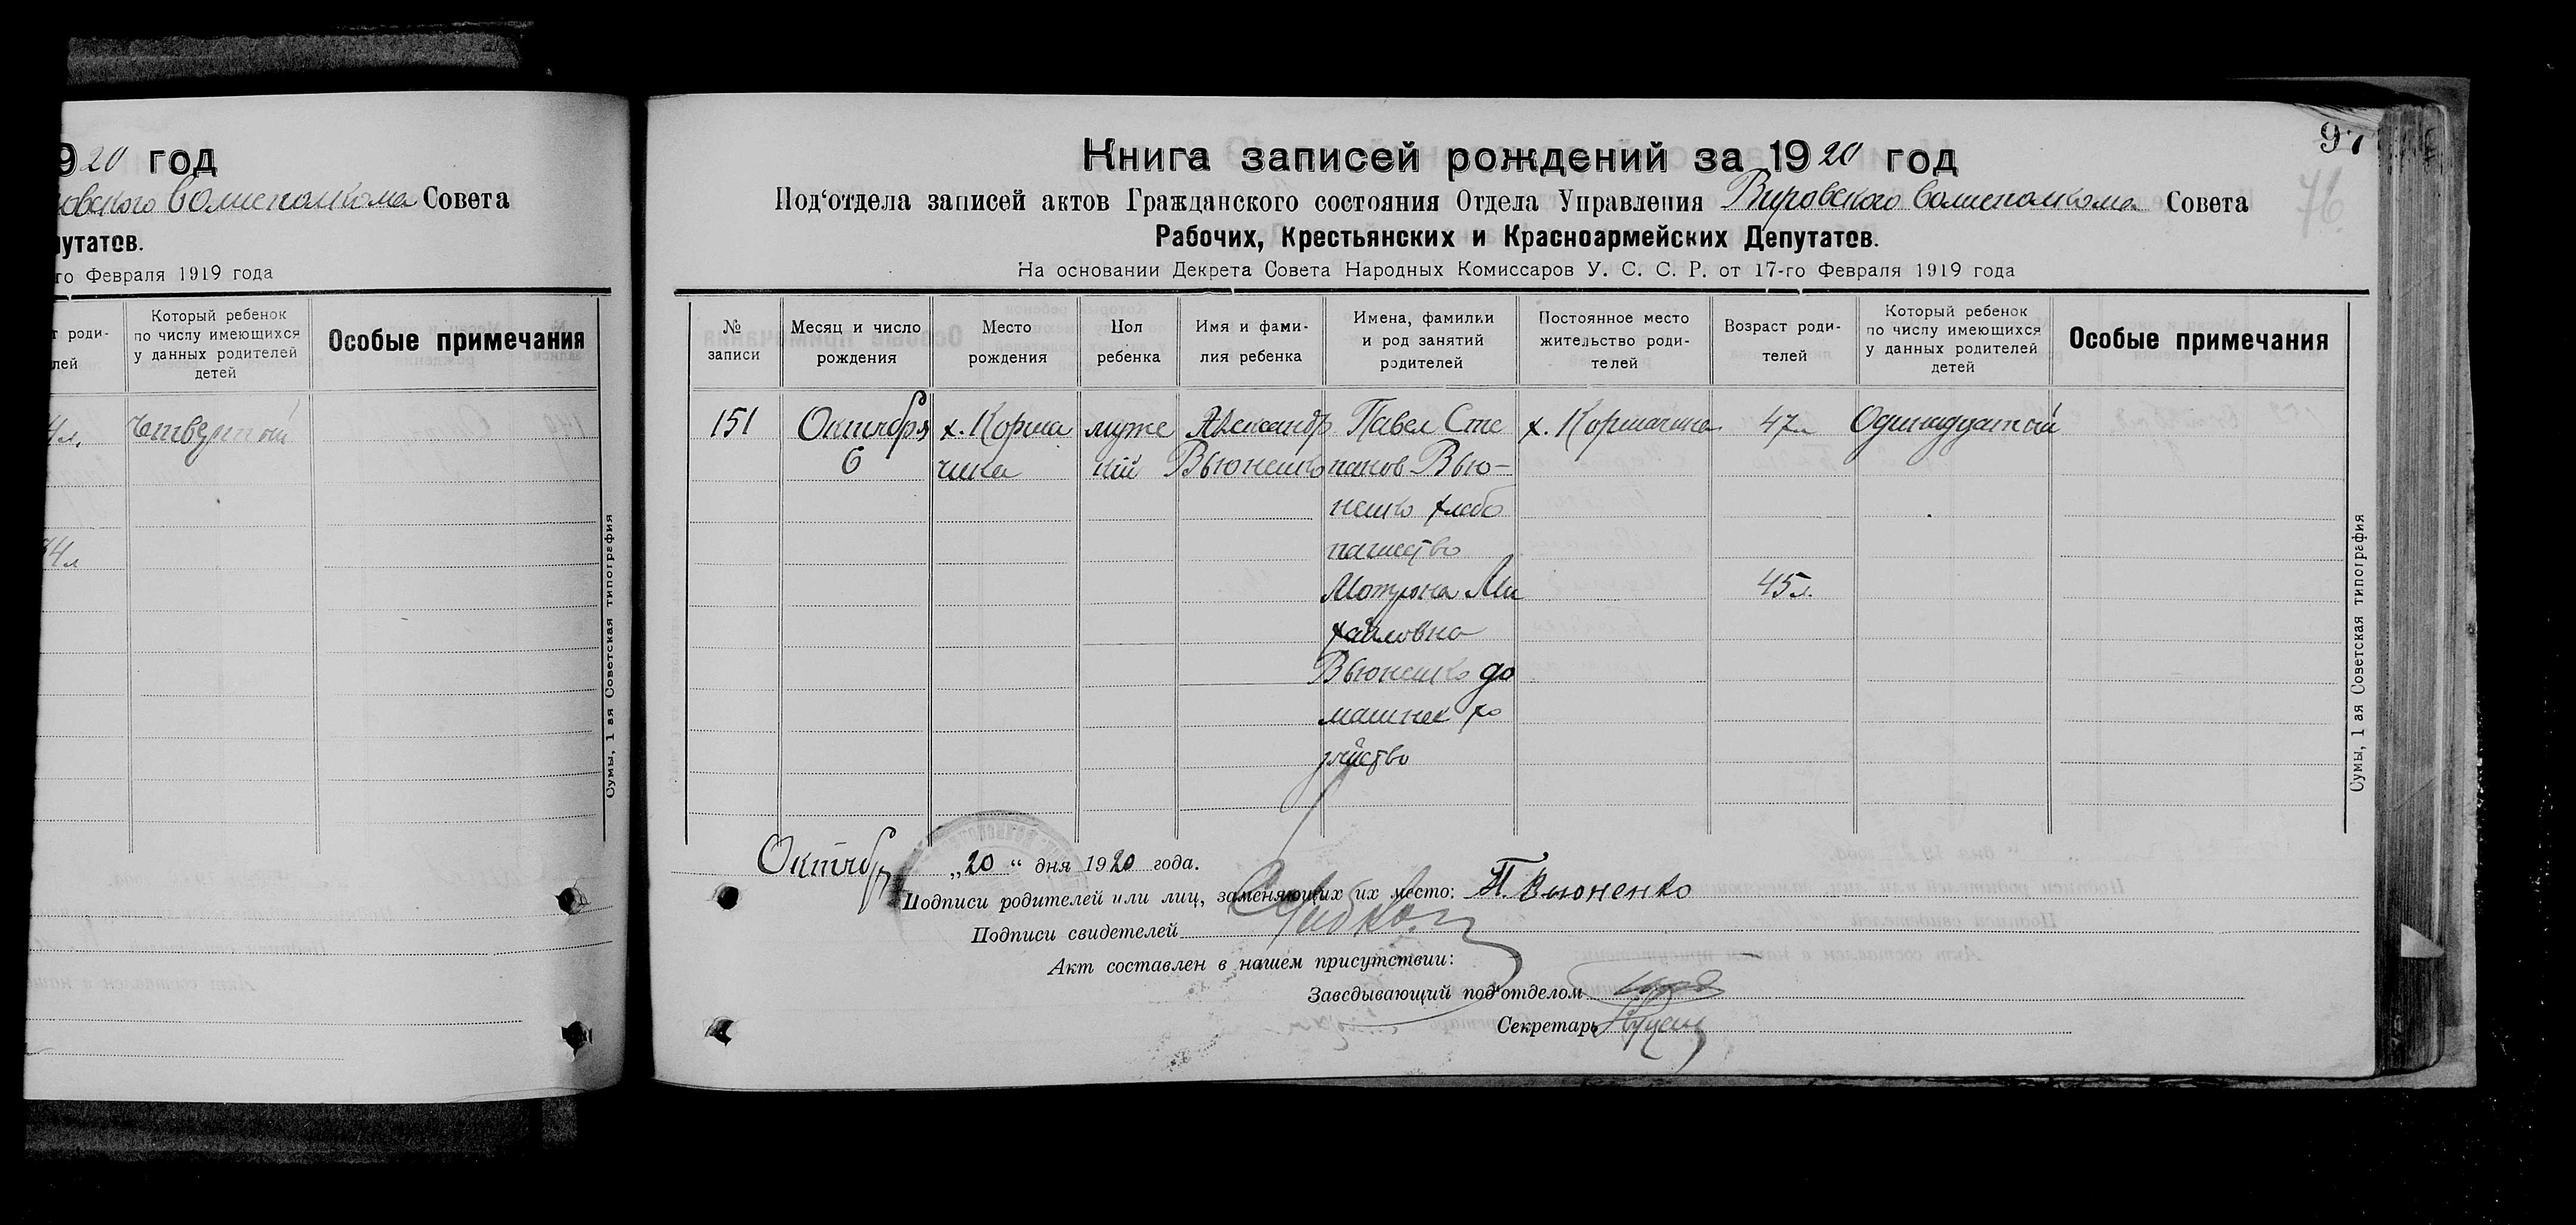 920 год
овского Волисполкома Совета
путатов.
го Февраля 1919 года
т роди-
лей
Который ребенок
по числу имеющихся
у данных родителей
детей
Особые примечания
4 л.
Четвертый
34 л
Сумы, 1 ая Советская типография
97
76
Книга записей рождений за 1920 год
Под‘отдела записей актов Гражданского состояния Отдела Управления Вировского Волисполкома Совета
Рабочих, Крестьянских и Красноармейских Депутатов.
На основании Декрета Совета Народных Комиссаров У. С. С. Р. от 17-го Февраля 1919 года
№
записи
Месяц и число
рождения
Место
рождения
Пол
ребенка
Имя и фами-
лия ребенка
Имена, фамилии
и род занятий
родителей
Постоянное место
жительство роди-
телей
Возраст роди-
телей
Который ребенок
по числу имеющихся
у данных родителей
детей
Особые примечания
151
Октября
6
х. Корша
чина
муже
кий
Александр
Вьюненко
Павел Сте
панов Вью-
ненко хлебо
пашество
Мотрона Ми
хайловна
Вьюненко до
машнее хо
зяйство
х. Коршачина
47 л
45 л.
Одинадцатый
Сумы, 1 ая Советская типография
Октябр „20“ дня 1920 года.
Подписи родителей или лиц, заменяющих их место: П. Вьюненко
Подписи свидетелей
Акт составлен в нашем присутствии:
Заведывающий под‘отделом
Секретарь